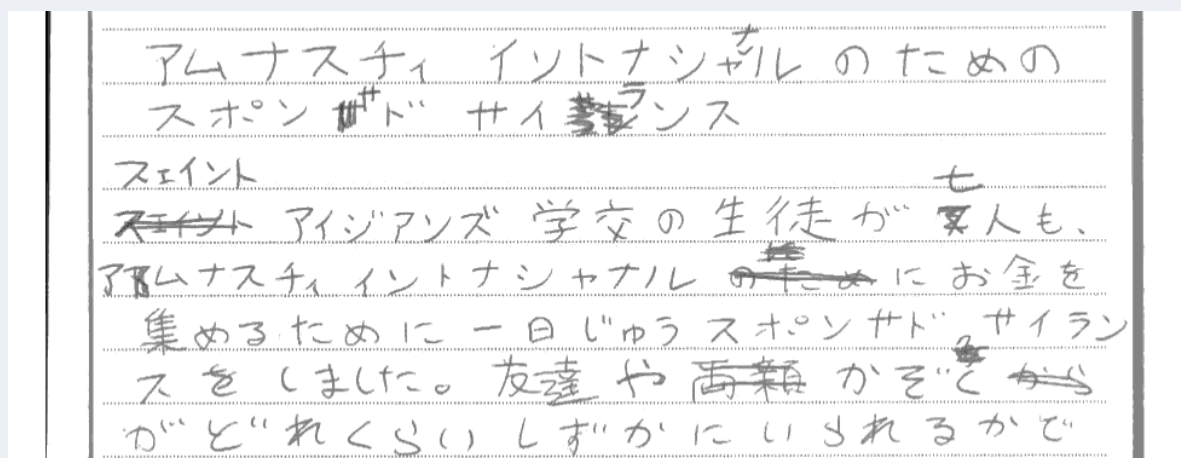 アムナスティ イントナシャナルのための
スポンサド サイランス
スェイント
アイジアンズ 学交の生徒が七人も、
アムナスティイントナシャナルにお金を
集めるために一日じゅうスポンサド サイラン
スをしました。友達やかぞく
がどれくらいしずかにいられるかで